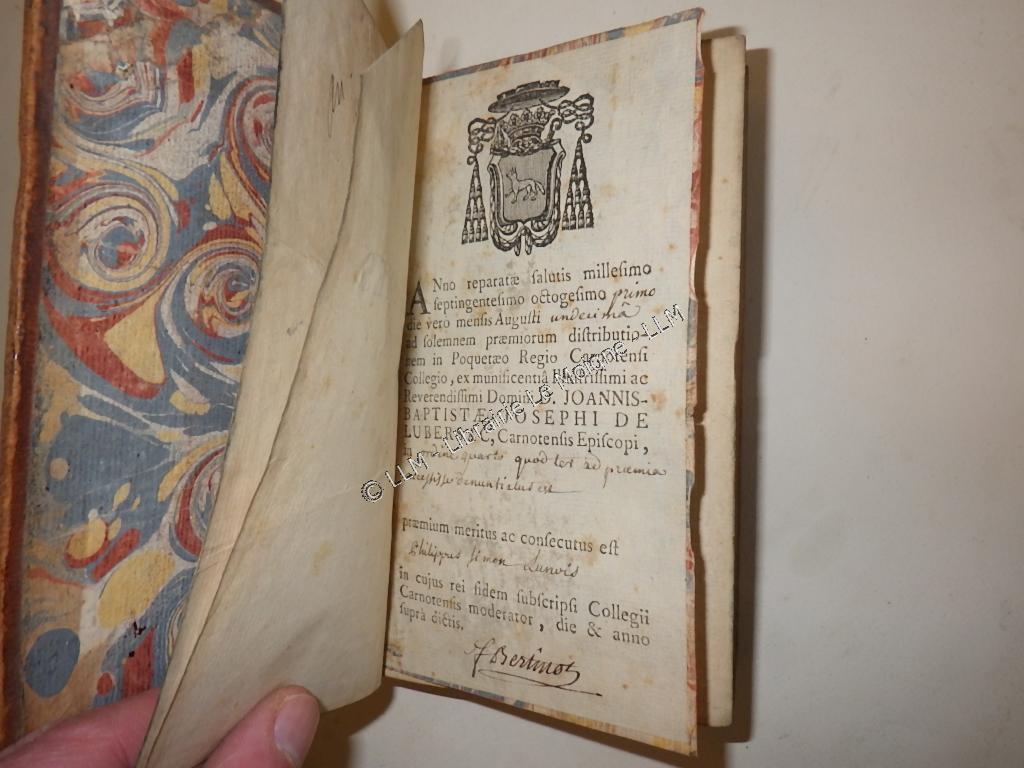 ANno reparatæ salutis millesimo
septingentesimo octogesimo primo
die vero mensis Augusti undecimâ
ad solemnem præmiorum distributio-
nem in Poquetæo Regio Carnotensi
Collegio, ex munificentiâ Illustrissimi ac
Reverendissimi Domini D. JOANNIS-
BAPTISTÆ JOSEPHI DE
LUBERSAC, Carnotensis Episcopi,
quarto quod ter ad præmia
denuntiatus est
præmium meritus ac consecutus est
Philippus Simon
in cujus rei fidem subscripsi Collegii
Carnotensis moderator, die & anno
suprà dictis.
Bertinot
© LLM - Librairie Le Moigne - LLM